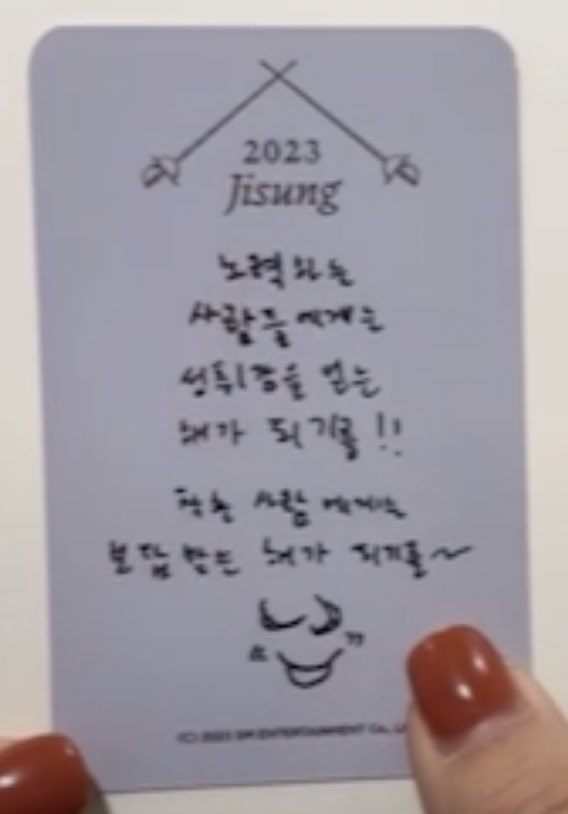 2023
Jisung
노력하는
사람들에게는
성취감을 얻는
해가 되기를!!
착한 사람에게는
보답받는 해가 되기를~
(C) 2023 SM ENTERTAINMENT Co., L